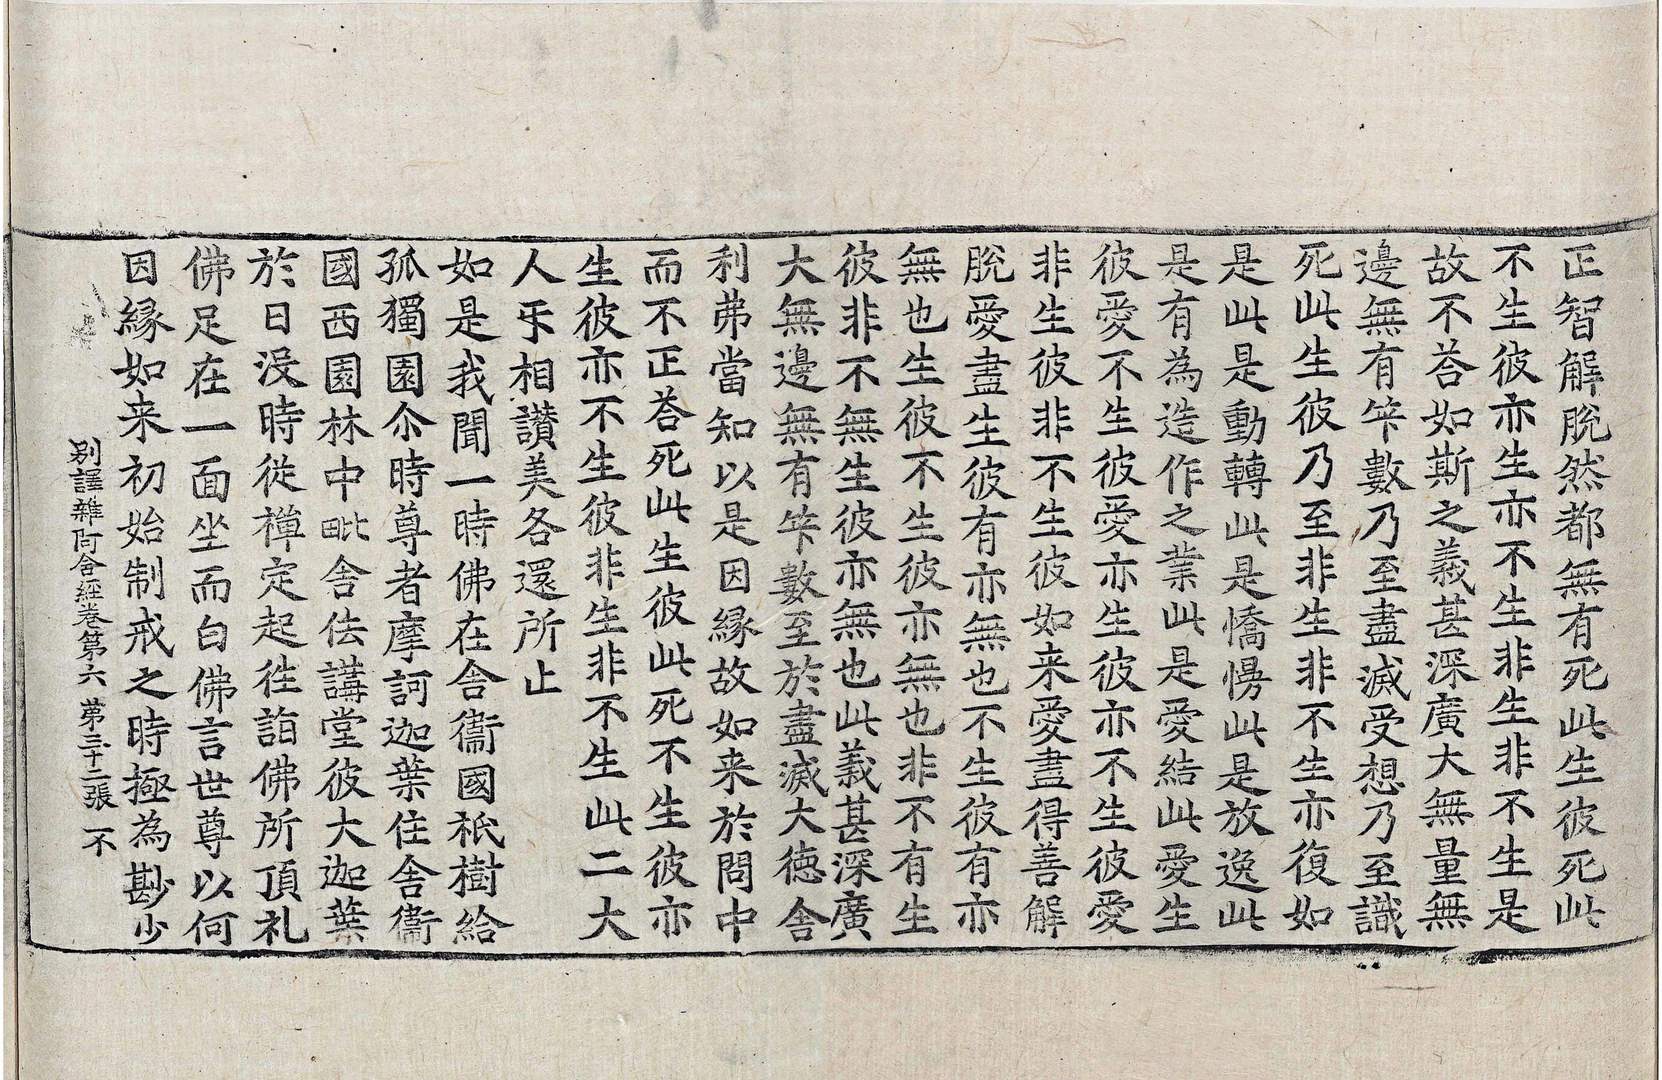 正智解脫然都無有死此生彼死此
不生彼亦生亦不生非生非不生是
故不荅如斯之義甚深廣大無量無
邊無有笇數乃至盡滅受想乃至識
死此生彼乃至非生非不生亦復如
是此是動轉此是憍慢此是放逸此
是有為造作之業此是愛結此愛生
彼愛不生彼愛亦生彼亦不生彼愛
非生彼非不生彼如来愛盡得善解
脫愛盡生彼有亦無也不生彼有亦
無也生彼不生彼亦無也非不有生
彼非不無生彼亦無也此義甚深廣
大無邊無有笇數至於盡滅大徳舍
利弗當知以是因縁故如来於問中
而不正荅死此生彼此死不生彼亦
生彼亦不生彼非生非不生此二大
人㸦相讃美各還所止
如是我聞一時佛在舍衞國祇樹給
孤獨園尒時尊者摩訶迦葉住舍衞
國西園林中毗舍佉講堂彼大迦葉
於日没時從禪定起往詣佛所頂礼
佛足在一面坐而白佛言世尊以何
因縁如来初始制戒之時極為尠少
別譯雜阿含經卷第六 第三十二張 不